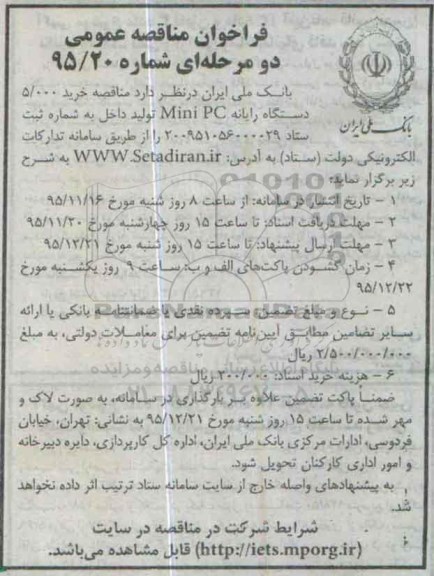 فراخوان مناقصه عمومی
دو مرحله‌ای شماره ۹۵/۲۰
بانک ملی ایران
بانک ملی ایران درنظر دارد مناقصه خرید ۵/۰۰۰
دستگاه رایانه Mini PC تولید داخل به شماره ثبت
ستاد ۲۰۰۹۵۱۰۵۶۰۰۰۰۲۹ را از طریق سامانه تدارکات
الکترونیکی دولت (ستاد) به آدرس: WWW.Setadiran.ir به شرح
زیر برگزار نماید:
۱ - تاریخ انتشار در سامانه: از ساعت ۸ روز شنبه مورخ ۹۵/۱۱/۱۶
۲ - مهلت دریافت اسناد: تا ساعت ۱۵ روز چهارشنبه مورخ ۹۵/۱۱/۲۰
۳ - مهلت ارسال پیشنهاد: تا ساعت ۱۵ روز شنبه مورخ ۹۵/۱۲/۲۱
۴ - زمان گشودن پاکت‌های الف و ب: ساعت ۹ روز یکشنبه مورخ
۹۵/۱۲/۲۲
۵ - نوع و مبلغ تضمین: سپرده نقدی یا ضمانتنامه بانکی یا ارائه
سایر تضامین مطابق آیین‌نامه تضمین برای معاملات دولتی، به مبلغ
۲/۵۰۰/۰۰۰/۰۰۰ ریال
۶ - هزینه خرید اسناد: ۲۰۰/۰۰۰ ریال
ضمناً پاکت تضمین علاوه بر بارگذاری در سامانه، به صورت لاک و
مهر شده تا ساعت ۱۵ روز شنبه مورخ ۹۵/۱۲/۲۱ به نشانی: تهران، خیابان
فردوسی، ادارات مرکزی بانک ملی ایران، اداره کل کارپردازی، دایره دبیرخانه
و امور اداری کارکنان تحویل شود.
به پیشنهادهای واصله خارج از سایت سامانه ستاد ترتیب اثر داده نخواهد
شد.
شرایط شرکت در مناقصه در سایت
(http://iets.mporg.ir) قابل مشاهده می‌باشد.